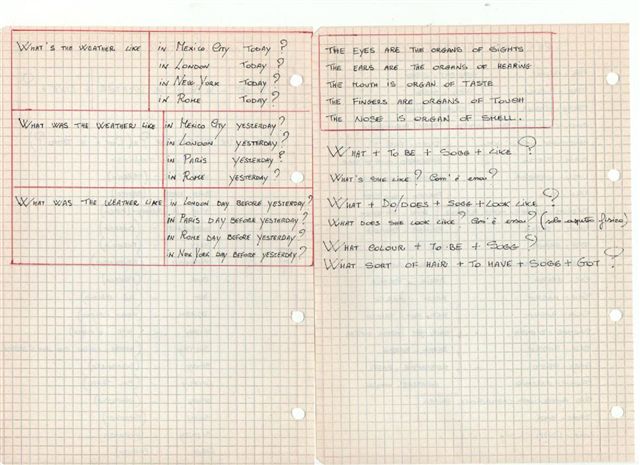 WHAT'S THE WEATHER LIKE
IN MEXICO CITY TODAY?
IN LONDON TODAY?
IN NEW YORK TODAY?
IN ROME TODAY?
WHAT WAS THE WEATHER LIKE
IN MEXICO CITY YESTERDAY?
IN LONDON YESTERDAY?
IN PARIS YESTERDAY?
IN ROME YESTERDAY?
WHAT WAS THE WEATHER LIKE
IN LONDON DAY BEFORE YESTERDAY?
IN PARIS DAY BEFORE YESTERDAY?
IN ROME DAY BEFORE YESTERDAY?
IN NEW YORK DAY BEFORE YESTERDAY?
THE EYES ARE THE ORGANS OF SIGHTS
THE EARS ARE THE ORGANS OF HEARING
THE MOUTH IS ORGAN OF TASTE
THE FINGERS ARE ORGANS OF TOUGH
THE NOSE IS ORGAN OF SMELL.
WHAT + TO BE + SOGG + LIKE?
WHAT'S SHE LIKE? Com'è essa?
WHAT + DO/DOES + SOGG + LOOK LIKE?
WHAT DOES SHE LOOK LIKE? Com'è essa? (solo aspetto fisico)
WHAT COLOUR + TO BE + SOGG?
WHAT SORT OF HAIR + TO HAVE + SOGG + GOT?